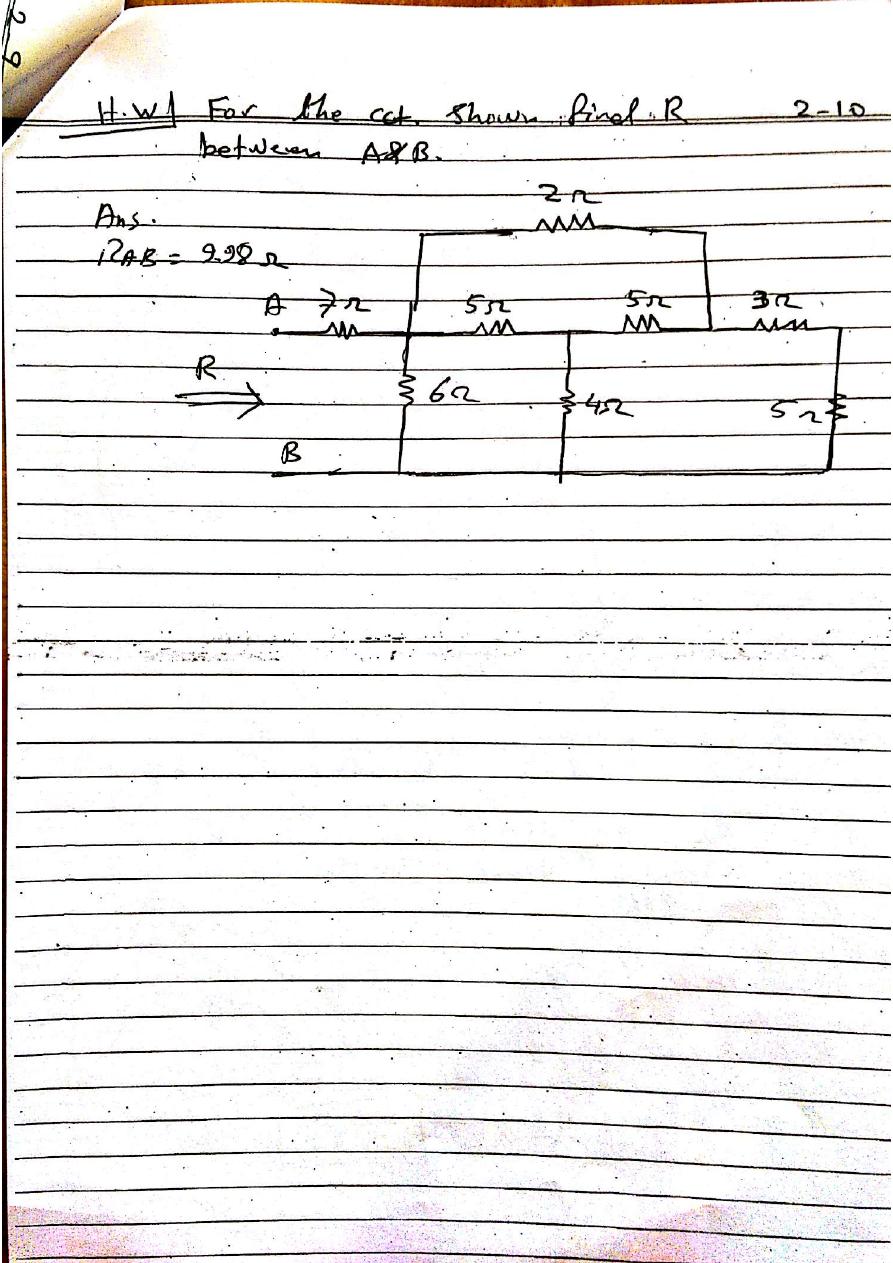 H.W1 For the cct. shown find R 2-10
between A&B.
2Ω
Ans.
RAB = 9.98 Ω
A 7Ω 5Ω 5Ω 3Ω
R 6Ω 4Ω 5Ω
B